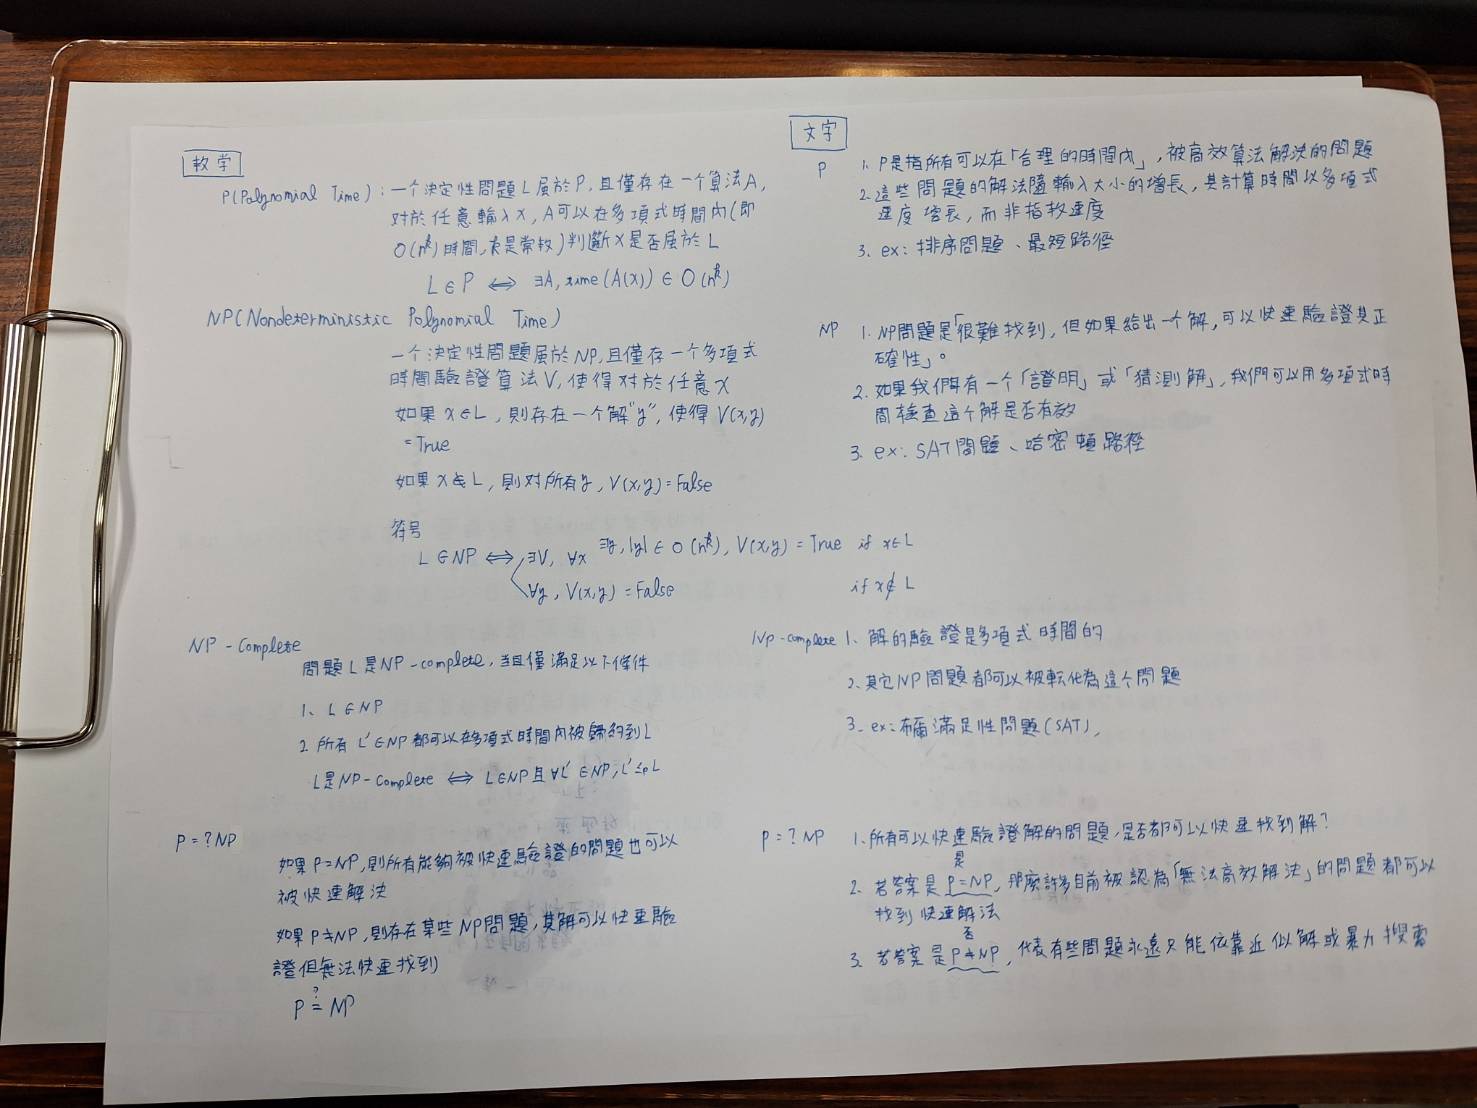 教学
P(Polynomial Time):一个決定性問題L屬於P,且僅存在一个算法A,
对於任意輸入x,A可以在多項式時間內(即
O(n^k)時間,k是常数)判斷x是否屬於L
L∈P ⇔ ∃A, time(A(x))∈O(n^k)
NP(Nondeterministic Polynomial Time)
一个決定性問題屬於NP,且僅存一个多項式
時間驗證算法V,使得对於任意x
如果x∈L,則存在一个解"y",使得V(x,y)
=True
如果x∉L,則对所有y,V(x,y)=False
符号
L∈NP ⇔ ∃V, ∀x ∃y, |y|∈O(n^k), V(x,y)=True if x∈L
∀y, V(x,y)=False if x∉L
NP-Complete
問題L是NP-complete,当且僅滿足以下條件
1、L∈NP
2 所有L'∈NP都可以在多項式時間內被歸約到L
L是NP-Complete ⇔ L∈NP且∀L'∈NP,L'≤pL
P=?NP
如果P=NP,則所有能夠被快速驗證的問題也可以
被快速解決
如果P≠NP,則存在某些NP問題,其解可以快速驗
證但無法快速找到
P ?= NP
文字
P
1. P是指所有可以在「合理的時間內」,被高效算法解決的問題
2.這些問題的解法隨輸入大小的增長,其計算時間以多項式
速度增長,而非指数速度
3. ex:排序問題、最短路徑
NP
1. NP問題是「很難找到,但如果給出一个解,可以快速驗證其正
確性」。
2.如果我們有一个「證明」或「猜測解」,我們可以用多項式時
間檢查這个解是否有效
3. ex:SAT問題、哈密頓路徑
Np-complete
1、解的驗證是多項式時間的
2、其它NP問題都可以被転化為這个問題
3. ex:布爾滿足性問題(SAT),
P=?NP
1.所有可以快速驗證解的問題,是否都可以快速找到解?
2. 若答案是P=NP,那麼許多目前被認為「無法高效解決」的問題都可以
是
找到快速解法
3. 若答案是P≠NP,代表有些問題永遠只能依靠近似解或暴力搜索
否